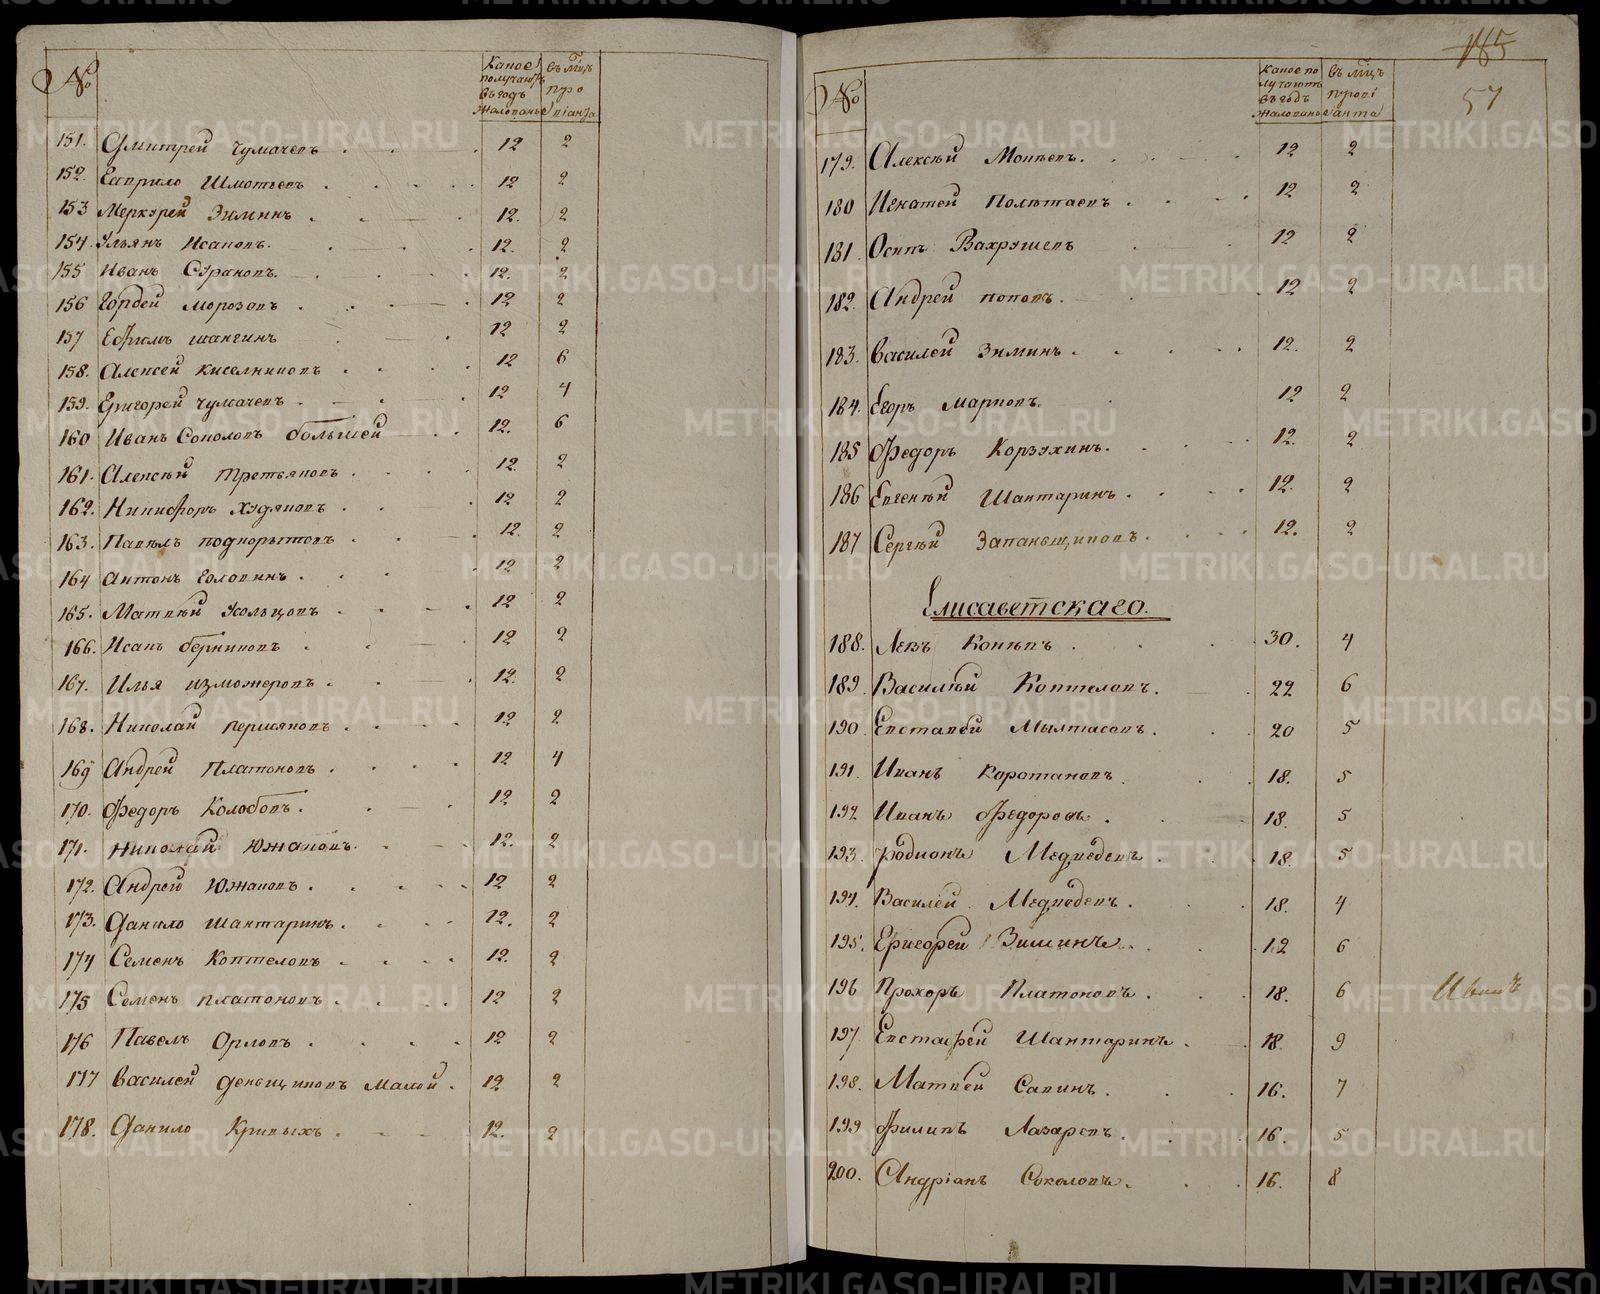 №
Какое
получаютъ
въ годъ
жалованье
въ мцъ
про
віанта
151. Дмитрей Чумачевъ 12 2
152. Гаврило Шмотьевъ 12 2
153 Меркурей Зиминъ 12. 2
154. Ульянъ Исаковъ. 12. 2
155 Иванъ Сураковъ. 12. 2
156 Гордей Морозовъ 12 2
157 Ефимъ Шангинъ 12 2
158. Алексей Киселниковъ 12 6
159. Григорей Чумачевъ 12 4
160 Иванъ Соколовъ большей 12. 6
161. Алексѣй Третьяковъ 12. 2
162. Никифоръ Худяковъ 12 2
163. Павѣлъ Поднорытовъ 12. 2
164 Антонъ Головинъ 12 2
165. Матвѣй Усольцовъ 12 2
166. Исакъ Берниковъ 12 2
167. Илья Изможеровъ 12. 2
168. Николай Першяковъ 12 2
169 Андрей Платоновъ 12 4
170. Федоръ Колобовъ. 12 2
171. Николай Южаковъ 12. 2
172. Андрей Южаковъ 12 2
173. Данило Шантаринъ 12. 2
174 Семенъ Коптеловъ 12. 2
175 Семенъ Платоновъ 12 2
176 Павелъ Орловъ 12 2
177 Василей Денщиковъ Малой 12 2
178. Данило Кривыхъ 12. 2
185
57
№
Какое по
лучаютъ
въ годъ
жалованье
въ мцъ
прові
анта
179. Алексѣй Мокѣевъ. 12 2
180 Игнатей Полѣтаевъ 12 2
181. Осипъ Вахрушевъ 12 2
182. Андрей Поповъ 12 2
183. Василей Зиминъ 12. 2
184. Егоръ Марковъ 12 2
185 Федоръ Корзухинъ. 12. 2
186 Евгенѣй Шантаринъ 12. 2
187 Сергѣй Запаньщиковъ 12. 2
Елисаветскаго.
188. Левъ Конѣвъ 30. 4
189. Василѣй Коптеловъ. 22 6
190. Евстафей Мылтасовъ 20 5
191. Иванъ Коротаковъ 18. 5
192 Иванъ Федоровъ 18. 5
193. Родионъ Медведевъ 18. 5
194. Василей Медведевъ 18. 4
195. Григорей Зиминъ 12 6
196 Прохоръ Платоновъ 18. 6 Иванъ
197 Евстафей Шантаринъ 18. 9
198. Матвей Савинъ 16. 7
199 Филипъ Лазаревъ 16. 5
200. Андріанъ Соколовъ 16. 8
METRIKI.GASO-URAL.RU